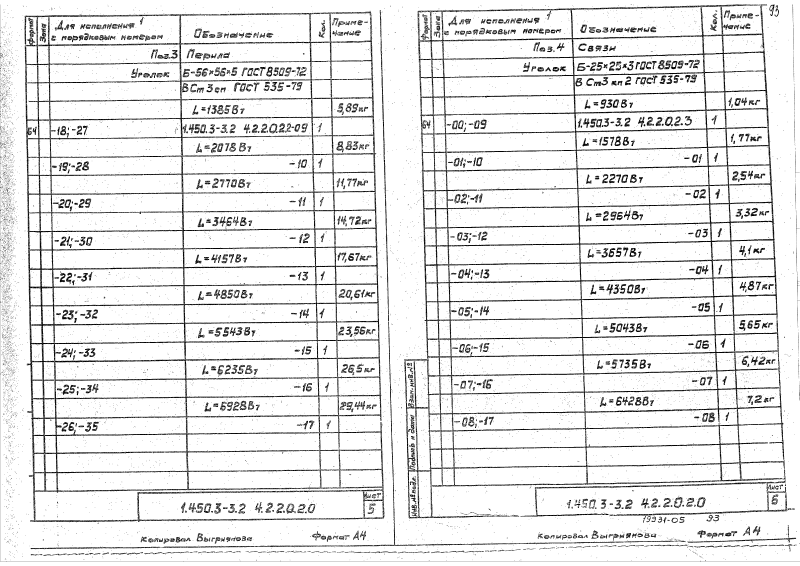 Формат
Зона
Для исполнения 1 с порядковым номером
Обозначение
Кол.
Приме-чание
Поз.3 Перила
Уголок Б-56×56×5 ГОСТ 8509-72
ВСт3сп ГОСТ 535-79
L=1385Вт 5,89кг
64 -18;-27 1.450.3-3.2 4.2.2.0.2.2-09 1
L=2078Вт 8,83кг
-19;-28 -10 1
L=2770Вт 11,77кг
-20;-29 -11 1
L=3464Вт 14,72кг
-21;-30 -12 1
L=4157Вт 17,67кг
-22;-31 -13 1
L=4850Вт 20,61кг
-23;-32 -14 1
L=5543Вт 23,56кг
-24;-33 -15 1
L=6235Вт 26,5кг
-25;-34 -16 1
L=6928Вт 29,44кг
-26;-35 -17 1
1.450.3-3.2 4.2.2.0.2.0
Лист
5
Копировал Выгриянова Формат А4
93
Формат
Зона
Для исполнения 1 с порядковым номером
Обозначение
Кол.
Приме-чание
Поз.4 Связи
Уголок Б-25×25×3 ГОСТ 8509-72
ВСт3кп2 ГОСТ 535-79
L=930Вт 1,04кг
64 -00;-09 1.450.3-3.2 4.2.2.0.2.3 1
L=1578Вт 1,77кг
-01;-10 -01 1
L=2270Вт 2,54кг
-02;-11 -02 1
L=2964Вт 3,32кг
-03;-12 -03 1
L=3657Вт 4,1кг
-04;-13 -04 1
L=4350Вт 4,87кг
-05;-14 -05 1
L=5043Вт 5,65кг
-06;-15 -06 1
L=5735Вт 6,42кг
-07;-16 -07 1
L=6428Вт 7,2кг
-08;-17 -08 1
Взам.инв.№
Подпись и дата
Инв.№ подл.
1.450.3-3.2 4.2.2.0.2.0
Лист
6
19931-05 93
Копировал Выгриянова Формат А4